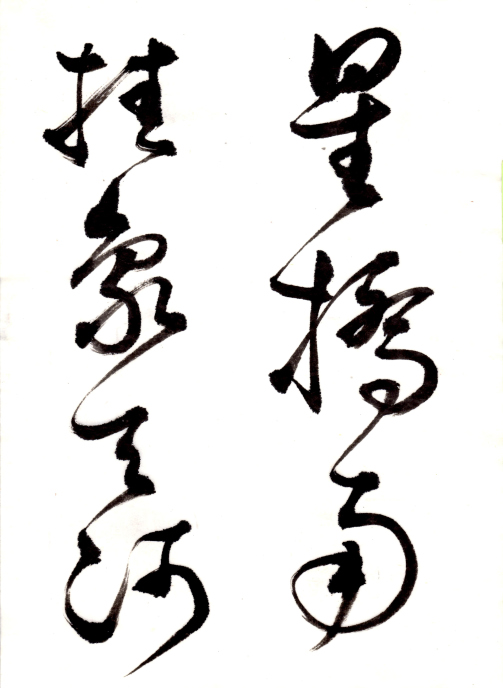 星橋南
挂象天河